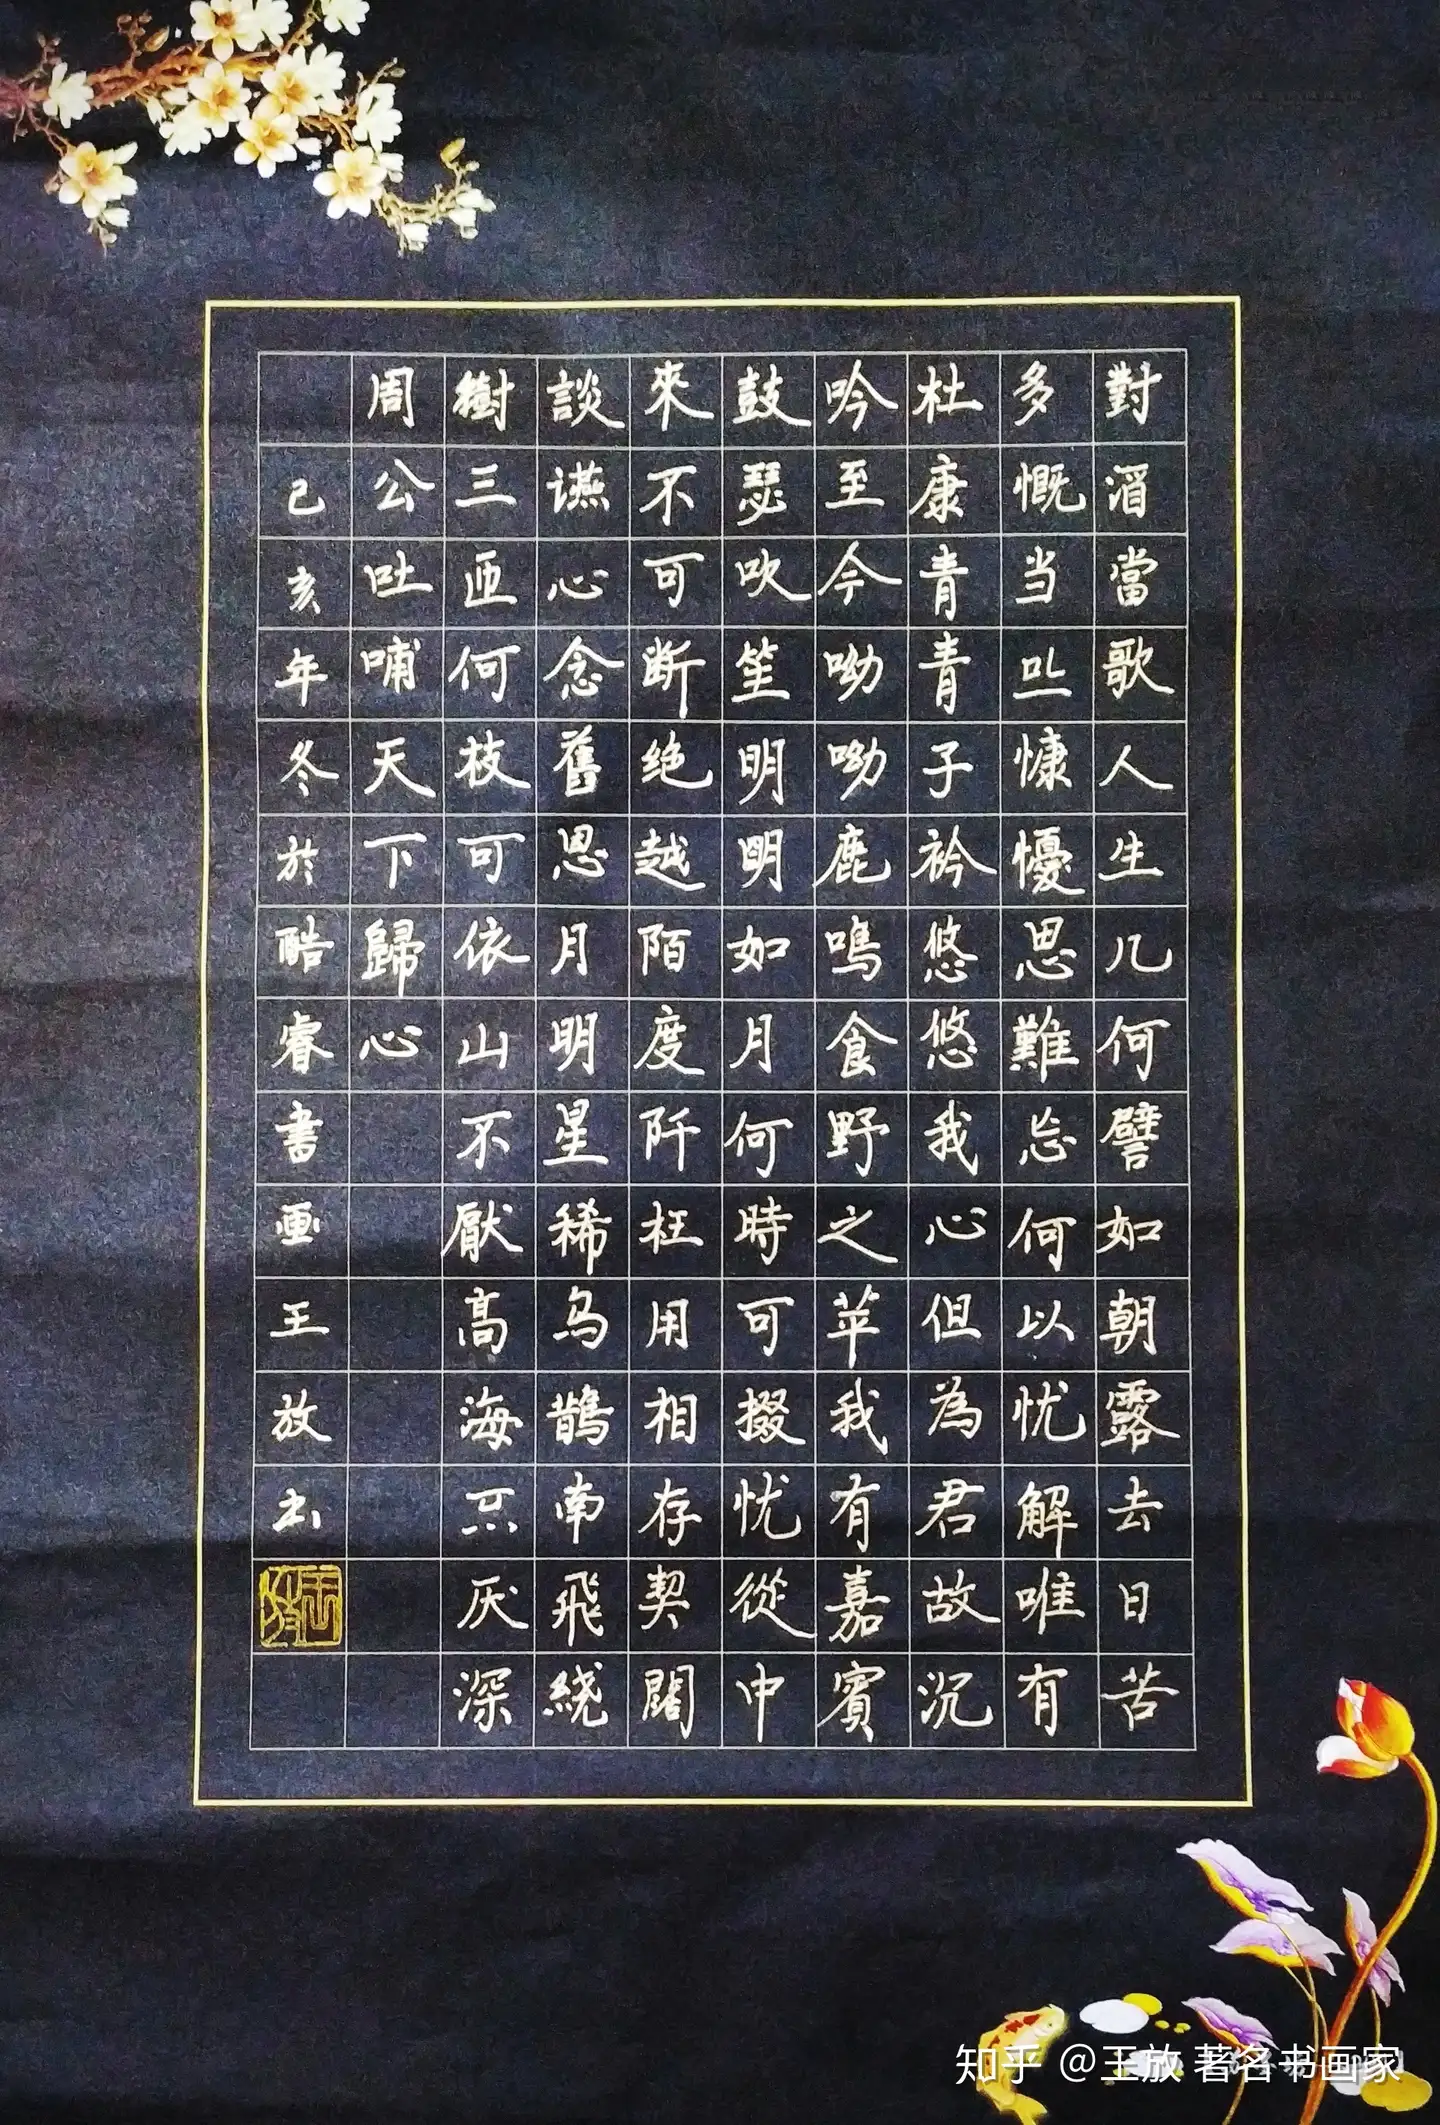 對酒當歌人生几何譬如朝露去日苦
多慨当以慷懮思難忘何以忧解唯有
杜康青青子衿悠悠我心但為君故沉
吟至今呦呦鹿鳴食野之苹我有嘉賓
鼓瑟吹笙明明如月何時可掇忧從中
來不可断绝越陌度阡枉用相存契闊
談讌心念舊恩月明星稀乌鵲南飛繞
樹三匝何枝可依山不厭高海不厌深
周公吐哺天下歸心
己亥年冬於酷睿書画王放书
王放
知乎 @王放 著名书画家